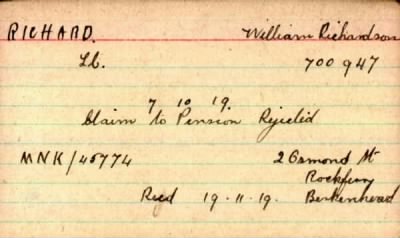 RICHARD. William Richardson
Lt. 700947
7 10 19.
Claim to Pension Rejected
MNK/45774 2 Ormond St
Rockferry
Recd 19.11.19. Berkenhead